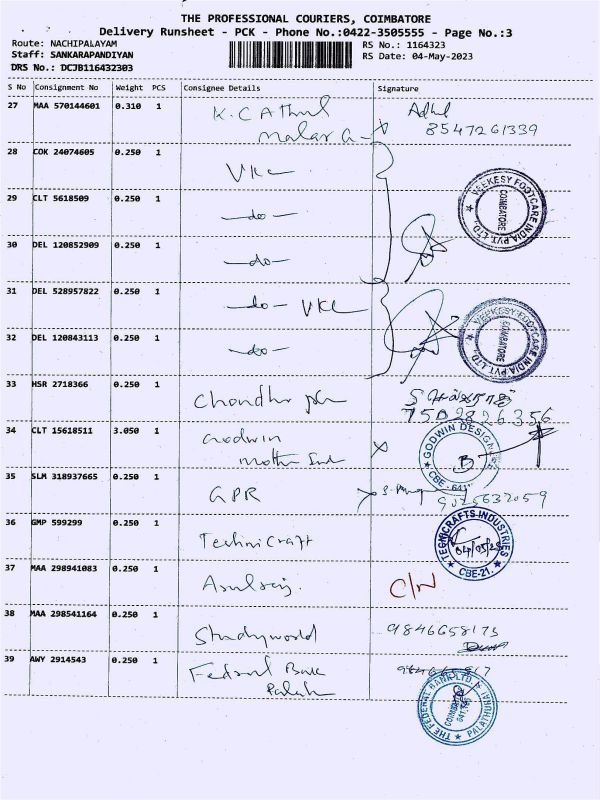 THE PROFESSIONAL COURIERS, COIMBATORE
Delivery Runsheet - PCK - Phone No.:0422-3505555 - Page No.:3
Route: NACHIPALAYAM
RS No.: 1164323
Staff: SANKARAPANDIYAN
RS Date: 04-May-2023
DRS No.: DCJB116432303
S No Consignment No Weight PCS Consignee Details Signature
27 MAA 570144601 0.310 1 K.C Athul
Malar a
8547261339
28 COK 24074605 0.250 1 VKC
29 CLT 5618509 0.250 1 —do—
VEEKESY FOOTCARE INDIA PVT. LTD.
COIMBATORE
30 DEL 120852909 0.250 1 —do—
31 DEL 528957822 0.250 1 —do— VKC
32 DEL 120843113 0.250 1 —do—
VEEKESY FOOTCARE INDIA PVT. LTD.
COIMBATORE
33 HSR 2718366 0.250 1
7502826356
34 CLT 15618511 3.050 1 Godwin
GODWIN DESIGN
CBE - 641
35 SLM 318937665 0.250 1 GPR
9025637059
36 GMP 599299 0.250 1 Technicraft
TECHNICRAFTS INDUSTRIES
04/05/23
CBE-21.
37 MAA 298941083 0.250 1
38 MAA 298541164 0.250 1 Studyworld
9846658173
39 AWY 2914543 0.250 1 Fedral Bank
THE FEDERAL BANK LTD.
COIMBATORE
PALATHURAI